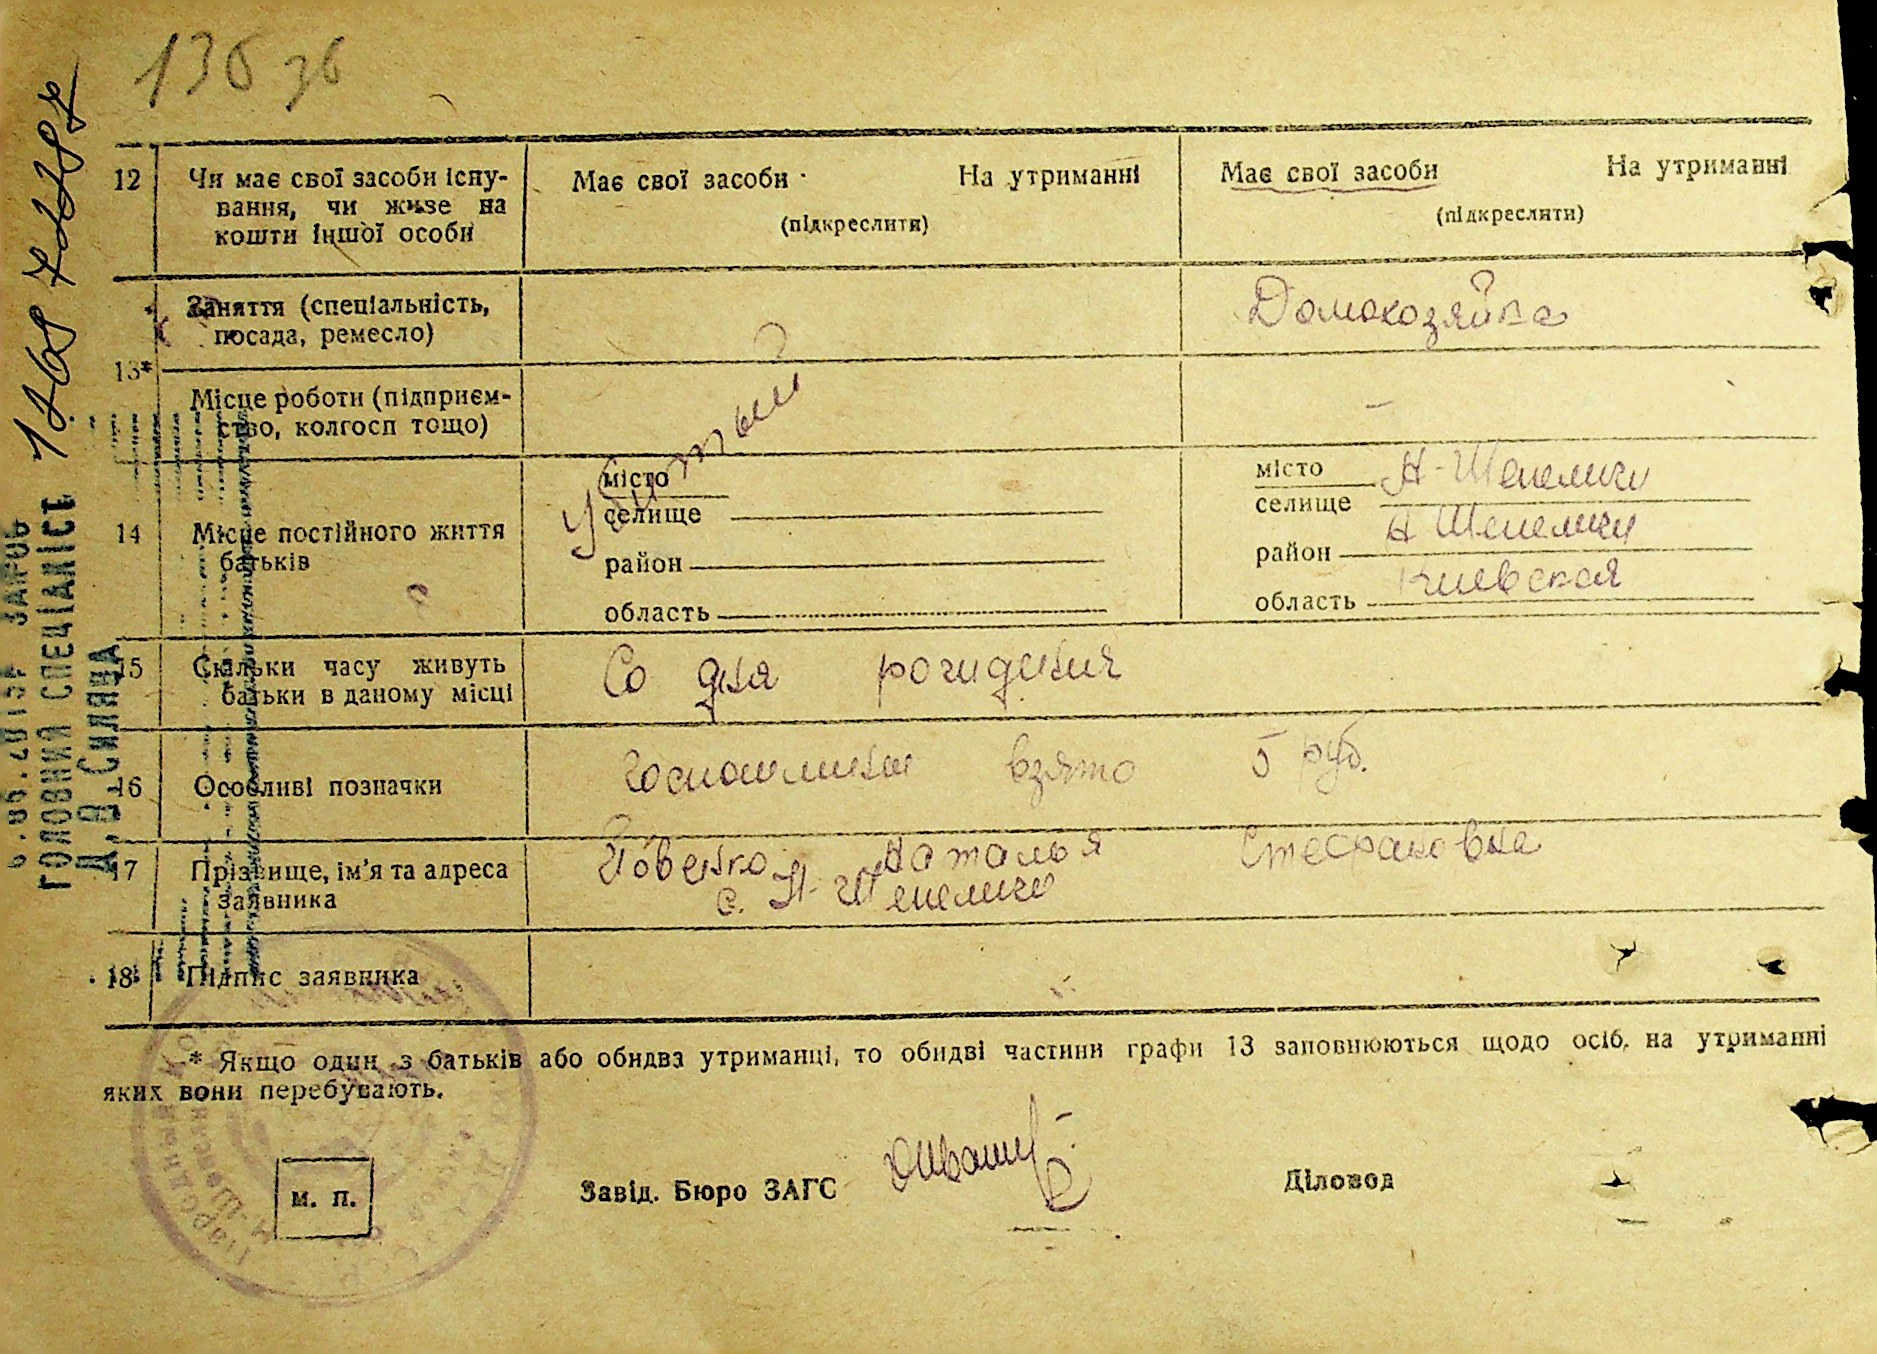 136 зв
12 Чи має свої засоби існу-
вання, чи живе на
кошти іншої особи
Має свої засоби На утриманні
(підкреслити)
Має свої засоби На утриманні
(підкреслити)
13*
Заняття (спеціальність,
посада, ремесло)
Домохозяйка
Місце роботи (підприєм-
ство, колгосп тощо)
–
Убитый
14 Місце постійного життя
батьків
місто
селище
район
область
місто Н-Шепеличи
селище
район Н Шепеличи
область Киевская
15 Скільки часу живуть
батьки в даному місці
Со дня рождения
16 Особливі позначки
Госпошлины взято 5 руб.
17 Прізвище, ім'я та адреса
заявника
Наталья Стефановна
с. Н-Шепеличи
18 Підпис заявника
* Якщо один з батьків або обидва утриманці, то обидві частини графи 13 заповнюються щодо осіб, на утриманні
яких вони перебувають.
м. п.
Завід. Бюро ЗАГС
Діловод
ГОЛОВНИЙ СПЕЦІАЛІСТ